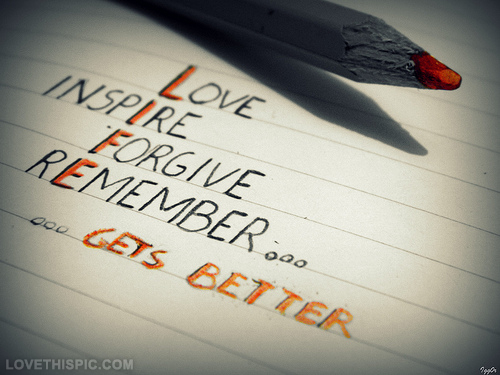 LOVE
INSPIRE
FORGIVE
REMEMBER...
... GETS BETTER
LOVETHISPIC.COM